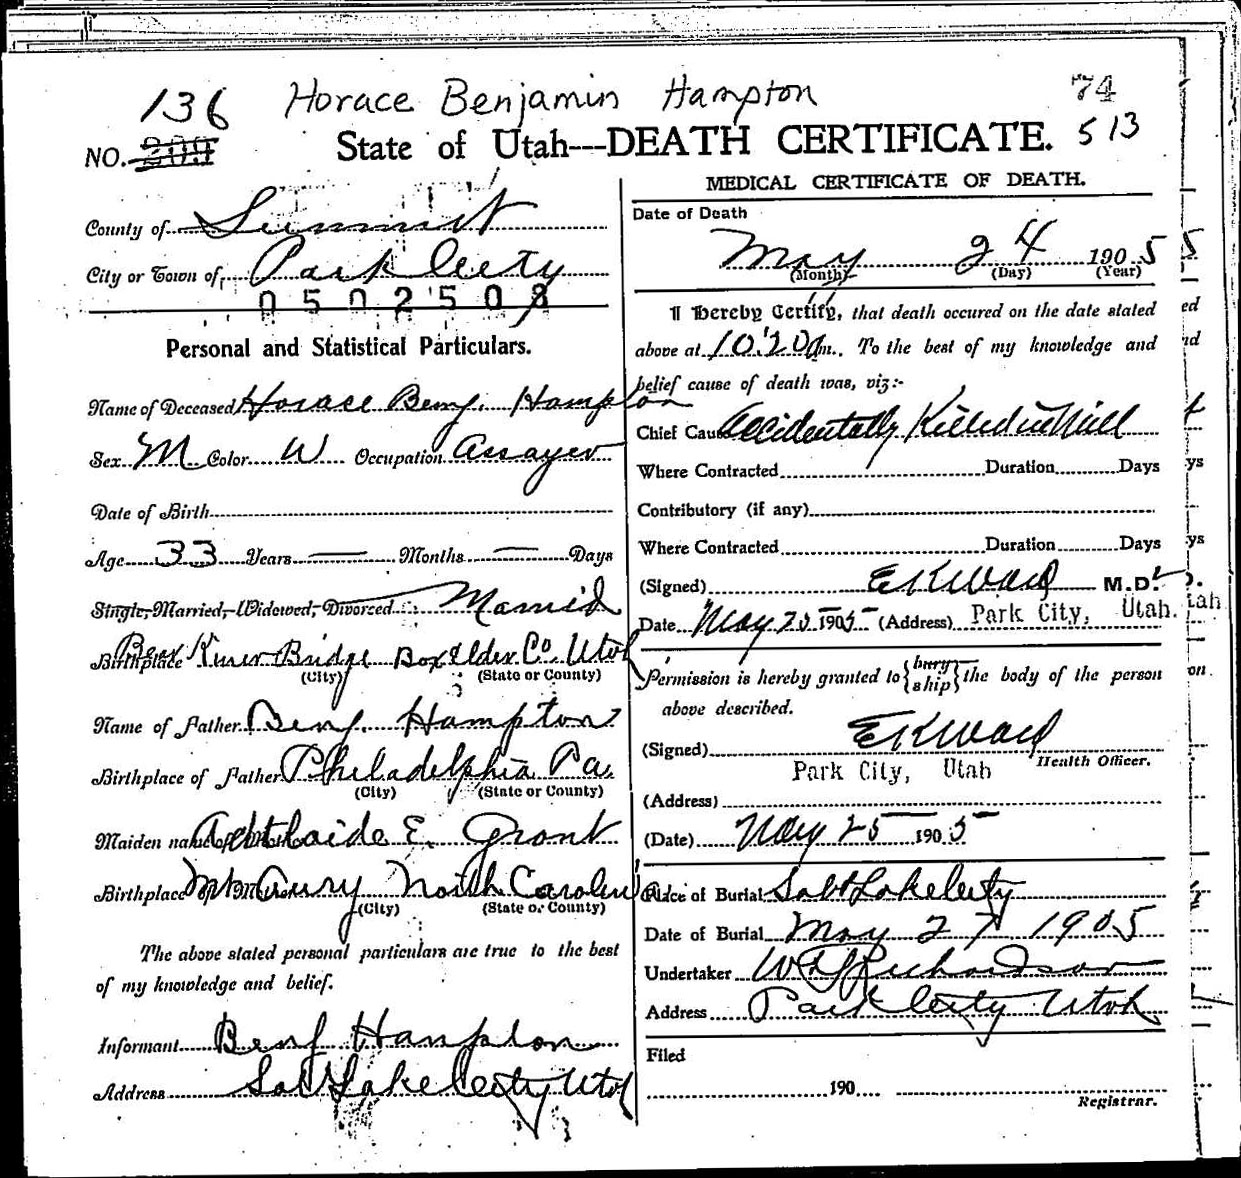 136 Horace Benjamin Hampton 74
NO. 209 State of Utah---DEATH CERTIFICATE. 513
County of Summit
City or Town of Park City
0502508
Personal and Statistical Particulars.
Name of Deceased Horace Benj. Hampton
Sex M Color W Occupation Assayer
Date of Birth
Age 33 Years — Months — Days
Single, Married, Widowed, Divorced Married
Birthplace Bear River Bridge Box Elder Co. Utah
(City) (State or County)
Name of Father Benj. Hampton
Birthplace of Father Philadelphia Pa.
(City) (State or County)
Maiden name of Mother Adelaide E. Grant
Birthplace of Mother Mt Airy North Carolina
(City) (State or County)
The above stated personal particulars are true to the best
of my knowledge and belief.
Informant Benj Hampton
Address Salt Lake City Utah
MEDICAL CERTIFICATE OF DEATH.
Date of Death
May 24 1905
(Month) (Day) (Year)
I Hereby Certify, that death occured on the date stated
above at 10:20 a m. To the best of my knowledge and
belief cause of death was, viz:-
Chief Cause Accidentally Killed in Mill
Where Contracted Duration Days
Contributory (if any)
Where Contracted Duration Days
(Signed) E K Ward M.D.
Date May 25 1905 (Address) Park City, Utah.
Permission is hereby granted to {bury ship} the body of the person
above described.
(Signed) E K Ward
Park City, Utah Health Officer.
(Address)
(Date) May 25 1905
Place of Burial Salt Lake City
Date of Burial May 27 1905
Undertaker Richardson
Address Park City Utah
Filed
190
Registrar.